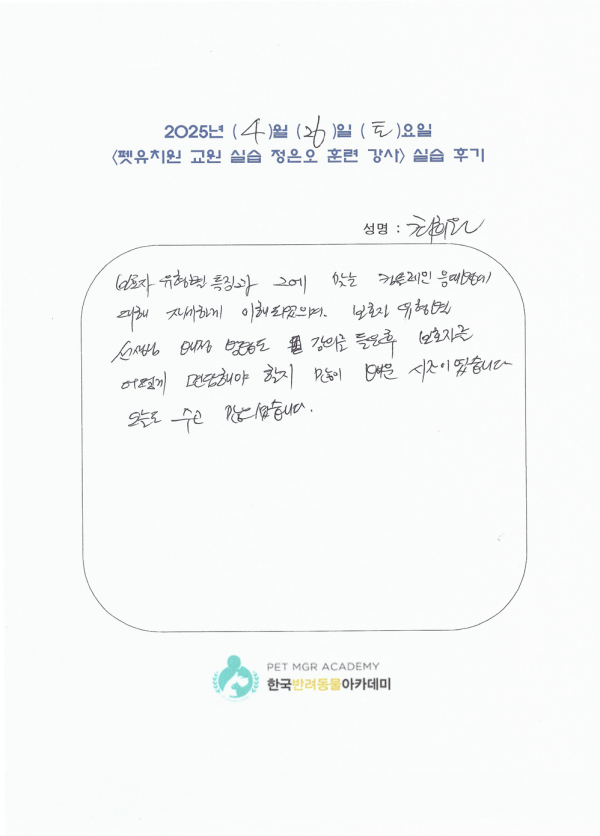 2025년 (4)월 (26)일 (토)요일
<펫유치원 교원 실습 정은오 훈련 강사> 실습 후기
성명 :
보호자 유형별 특징과 그에 맞는 컴플레인 응대법에
대해 자세하게 이해되었으며. 보호자 유형별
선생님 배정 방법도 강의를 들은후 보호자를
어떻게 면담해야 할지 많이 배운 시간이었습니다
오늘도 수고 많으셨습니다.
PET MGR ACADEMY
한국반려동물아카데미